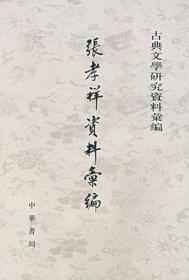 古典文學研究資料彙編
張孝祥資料彙編
中華書局